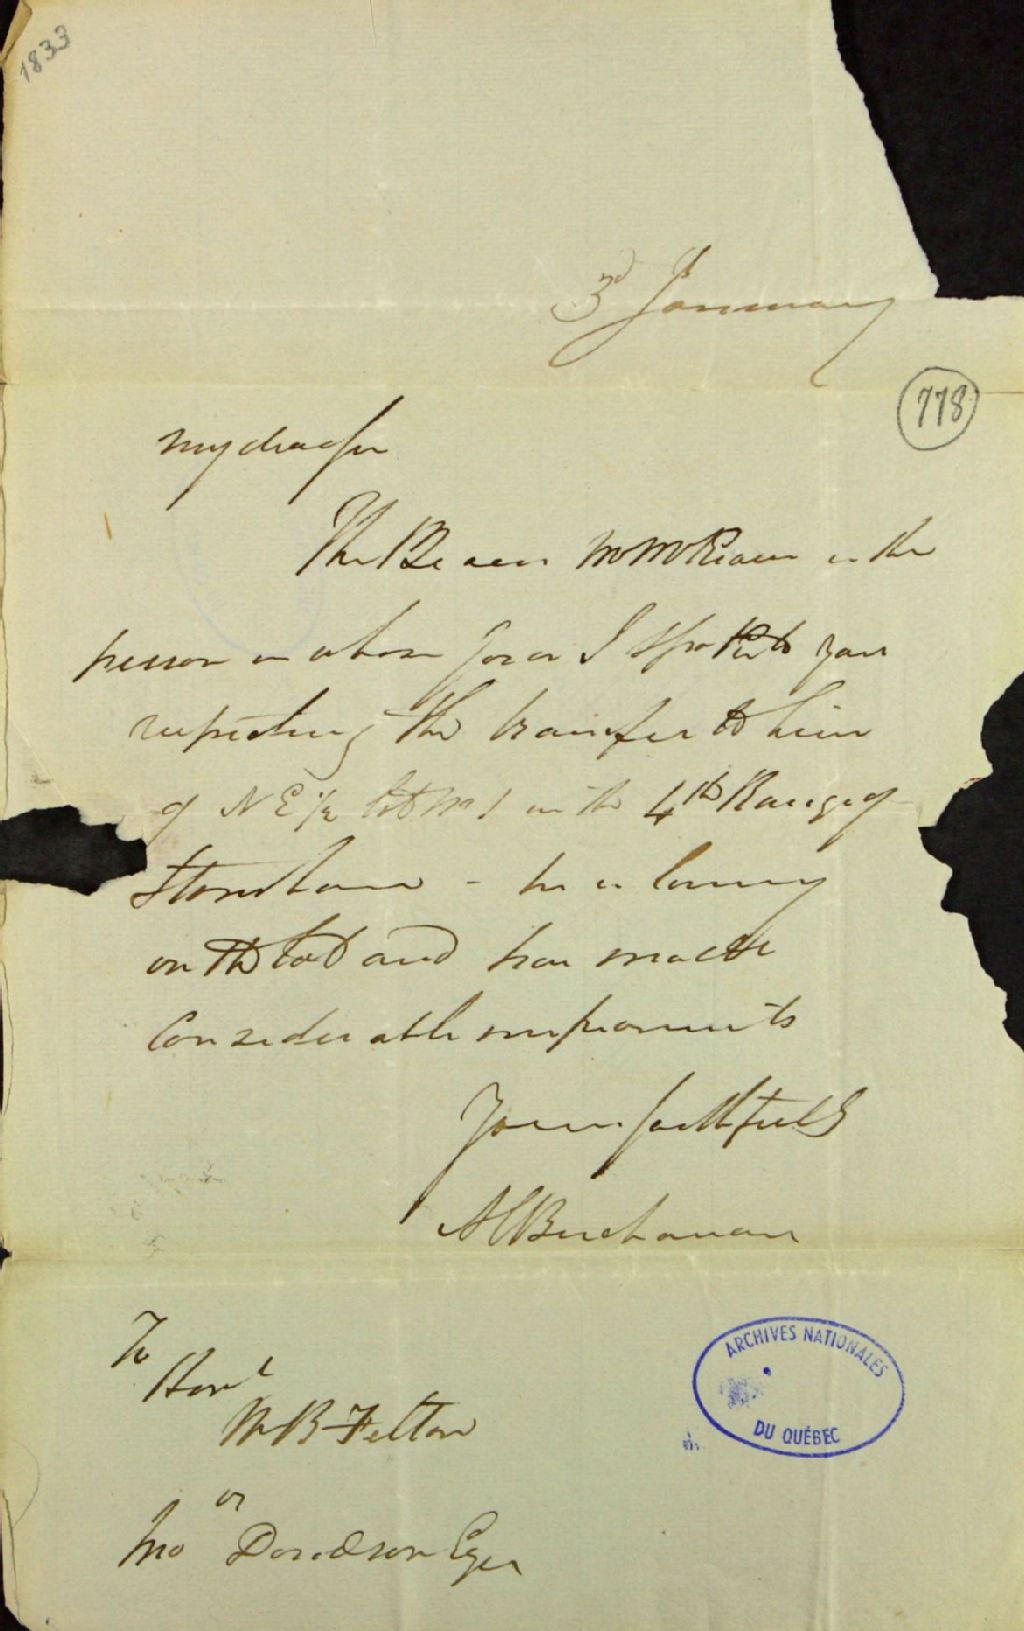 1833
3d January
778
My dear Sir
The Bearer Mr
is the
person in whose favor I spoke to you
respecting the transfer to him
of N E 1/2 lot No 1 in the 4th Range of
Stoneham - he is living
on the lot and has made
Considerable improvements
Yours faithfully
A C Buchanan
To
Honl
W B Felton
or
Jno Davidson Esqr
ARCHIVES NATIONALES
DU QUÉBEC